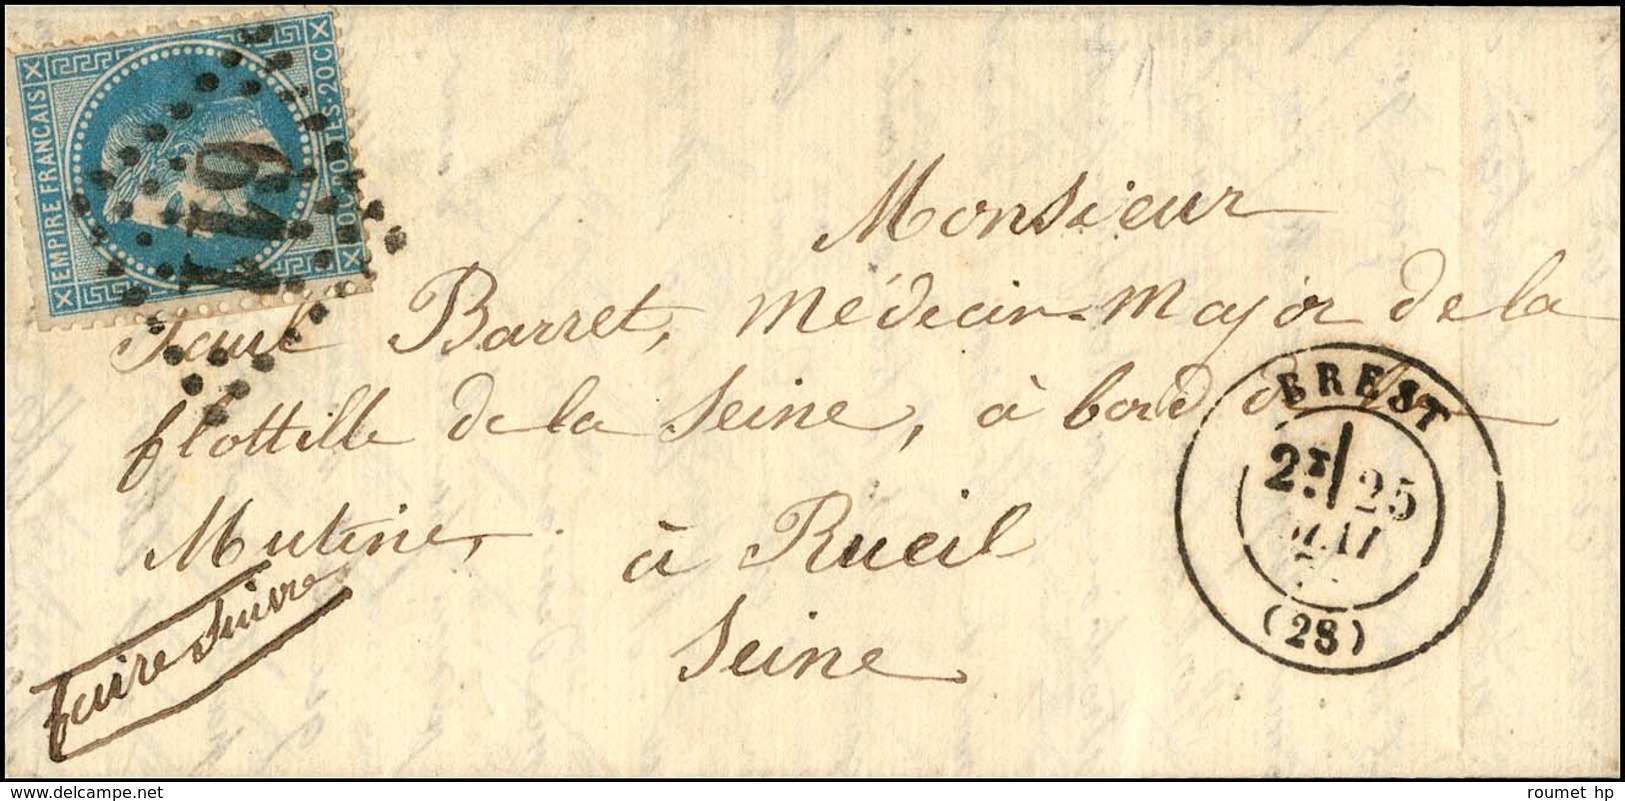 EMPIRE FRANCAIS
POSTES 20C
Monsieur
Paul Barret, Médecin-Major de la
flottille de la Seine, à bord de la
Mutine, à Rueil
Seine
Faire Suivre
BREST
2E 25
MAI
(28)
roumet hp